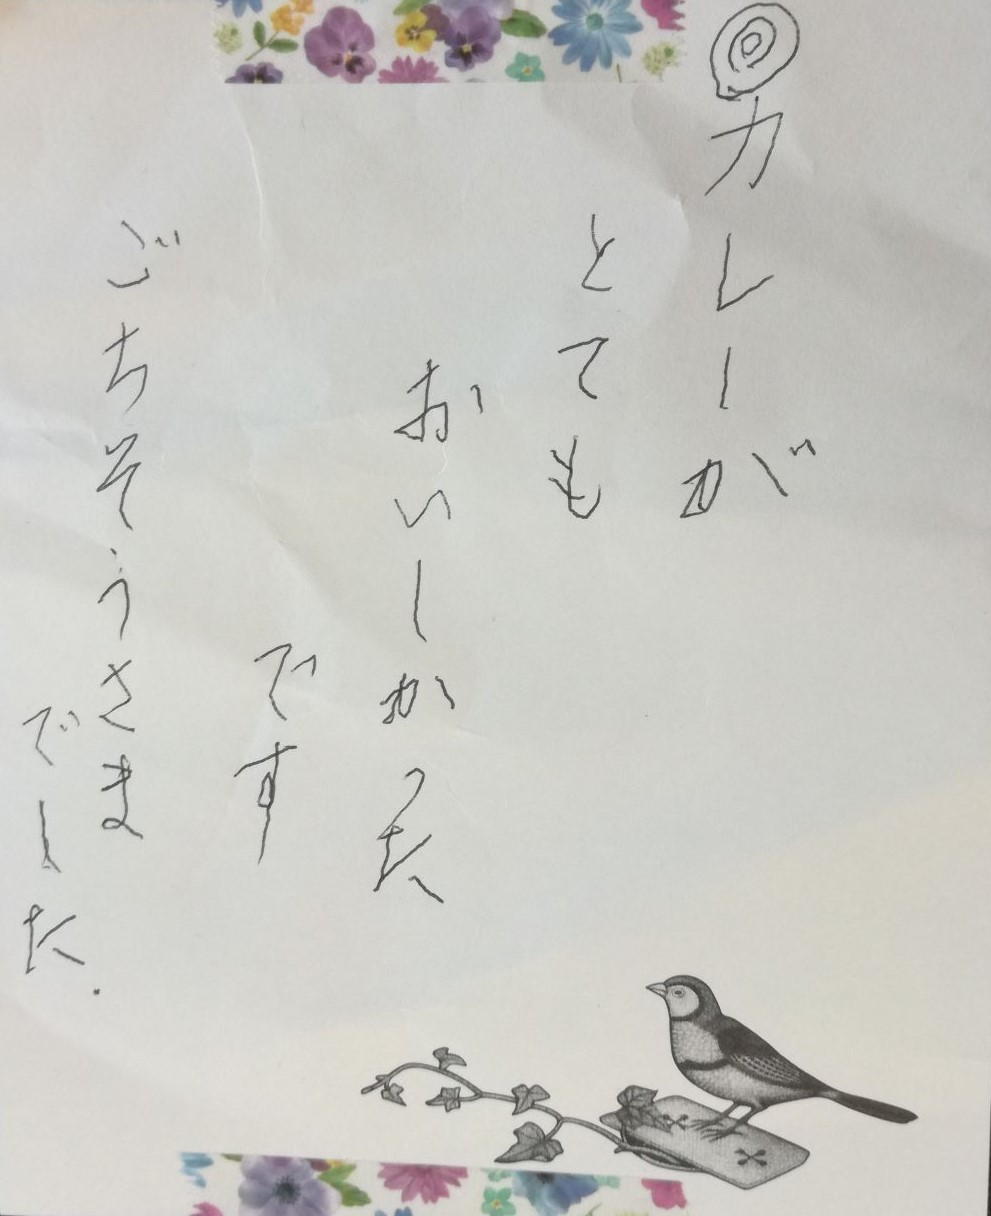 ◎カレーが
とても
おいしかった
です
ごちそうさま
でした.